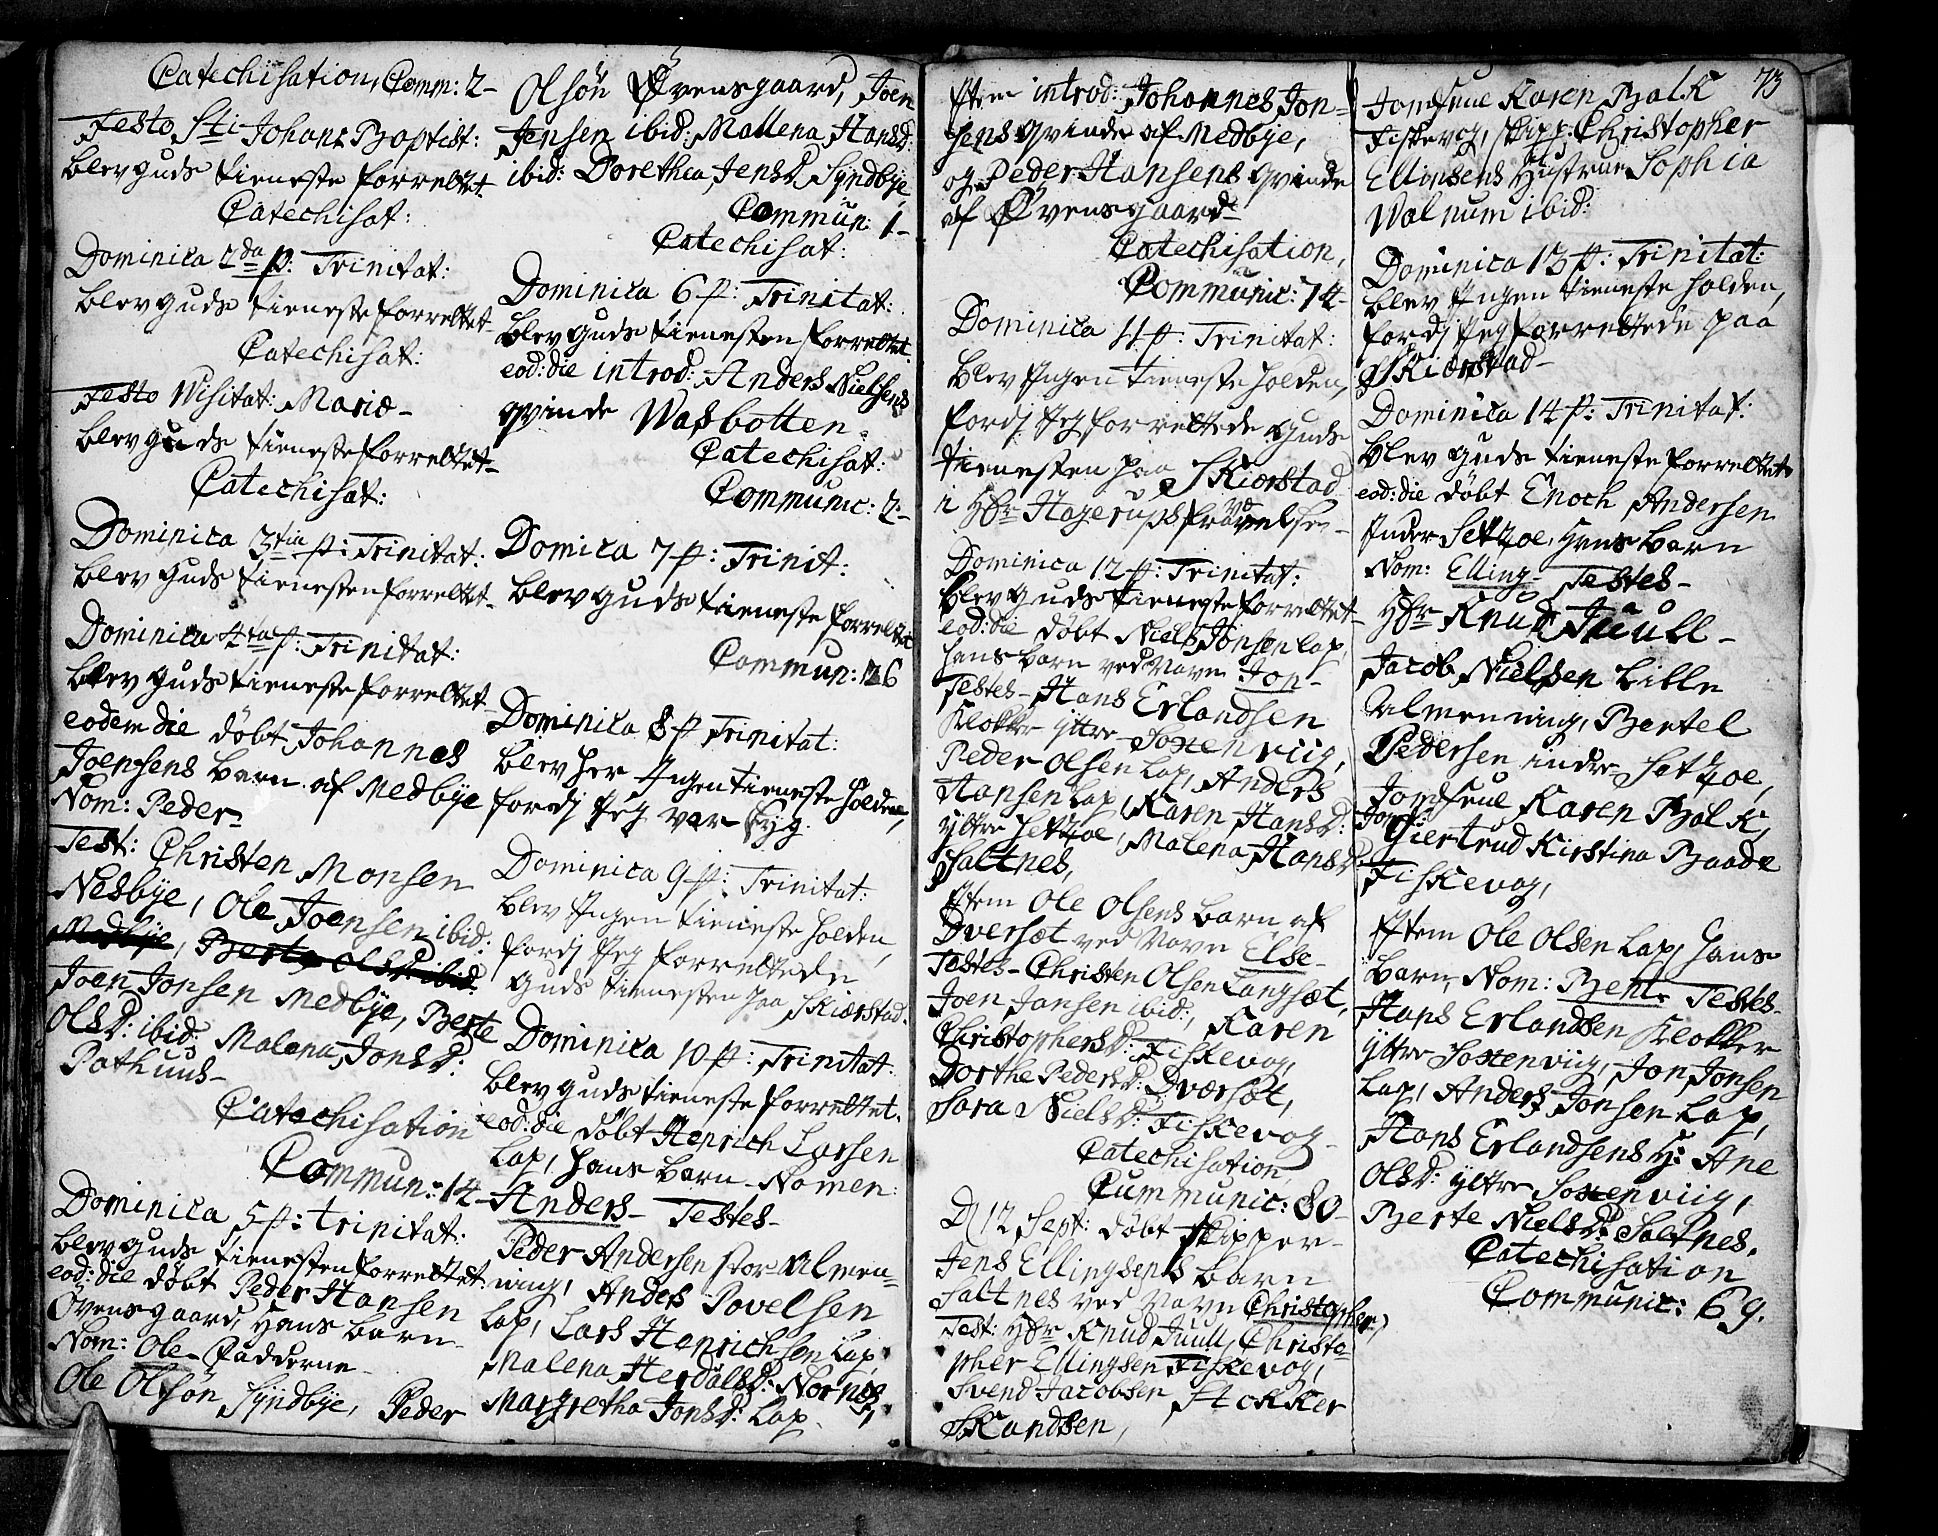 Catechisation, Comm: 2-
Festo Sti Johans Baptist:
blev guds tieneste forrettet
Catechisat:
Dominica 2da p: Trinitat:
blev guds tieneste forrettet-
Catechisat:
Festo Wisitat: Mariæ-
blev guds tieneste forrettet-
Catechisat:
Dominica 3tia p: Trinitat:
blev guds tienesten forrettet-
Dominica 4ta p: Trinitat:
blev guds tieneste forrettet
eodem die döbt Johannes
Joensens barn af Medbÿe
Nom: Peder-
Test: Christen Monsen
Nesbÿe, Ole Joensen ibid:
Medbÿe, Berte Olsd: ibid:
Joen Jonsen Medbÿe, Berte
Olsd: ibid: Malena Jonsd:
Pathuus-
Catechisation
Commun: 14-
Dominica 5 p: trinitat:
blev guds tienesten forrettet
eod: die döbt Peder Hansen
Övensgaard, hans barn-
Nom: Ole- Fadderne-
Ole Olsön Sÿndbÿe, Peder
Olsön Øvensgaard, Joen
Jensen ibid: Mallena Hansd:
ibid: Dorethea Jensd Sÿndbÿe
Commun: 1-
Catechisat:
Dominica 6 p: Trinitat:
blev guds tienesten forrettet
eod: die introd: Anders Nielsens
qvinde Wasbotten-
Catechisat:
Communic: 2-
Domica 7 p: Trinit:
blev guds tieneste forrettet
Commun: 26
Dominica 8 p Trinitat:
blev her Ingen tieneste holden,
fordj Jeg var syg.
Dominica 9 p: Trinitat:
blev Ingen tieneste holden,
fordj Jeg forrettede
guds tienesten paa Skierstad.
Dominica 10 p: Trinitat:
blev guds tieneste forrettet.
eod: die döbt Henrich Larsen
Lap, hans barn- Nomen:
Anders- Testes-
Peder Andersen stor Almen-
ning, Anders Povelsen
Lap, Lars Henrichsen Lap
Malena Herdalsd: Nornes,
Margretha Jonsd: Lap-
Item introd: Johannes Jon-
sens qvinde af Medbye,
og Peder Hansens qvinde
af Øvensgaard-
Catechisation,
Communic: 74-
Dominica 11 p: Trinitat:
blev Ingen tieneste holden,
fordj Jeg forrettede guds
tienesten paa Skierstad
i Hr Hagerups fraværelse-
Dominica 12 p: Trinitat:
blev guds tieneste forrettet-
eod: die döbt Niels Jonsen Lap,
hans barn ved Navn Jon-
Testes- Hans Erlandsen
Klokker ÿttre Soxenviig,
Peder Olsen Lap, Anders
Hansen Lap, Karen Hansd:
ÿttre Setzoe, Malena Hansd:
Saltnes,
Item Ole Olsens barn af
Dversæt ved Navn Else-
Testes- Christen Olsen Langsæt,
Joen Jansen ibid:, Karen
Christophersd: Fiskevog,
Dorthe Pedersd: Dværsæt,
Sara Nielsd: Fiskevog-
Catechisation,
Cummunic: 80-
D 12 Sept: döbt Skipper-
Jens Ellingsens barn
Saltnes ved Navn Christopher,
Test: Hr Knud Juull, Christo-
pher Ellingsen Fiskevog,
Svend Jacobsen Stokker
Skandsen,
73
Jomfrue Karen Balk
Fiskevog, skipp: Christopher
Ellinsens Hustrue Sophia
Walnum ibid:
Dominica 13 p: Trinitat:
blev Ingen tieneste holden,
fordj Jeg forrettede paa
Skierstad-
Dominica 14 p: Trinitat:
blev guds tieneste forrettet
eod: die döbt Enoch Andersen
Inder Setzoe, hans barn
Nom: Elling- Testes-
Hr Knud Juull-
Jacob Nielsen Lille
Almenning, Bertel
Pedersen indre Setzoe,
Jomfrue Karen Balk,
Jomf: Giertrud Kirstina Baade
Fiskevog,
Item Ole Olsen Lap, hans
barn, Nom: Bent- Testes-
Hans Erlandsen Klokker
ÿttre Soxenviig, Jon Jonsen
Lap, Anders Jonsen Lap,
Hans Erlandsens H: Ane
Olsd: ÿttre Soxenviig,
Berte Nielsd: Saltnes.
Catechisation
Communic: 69.